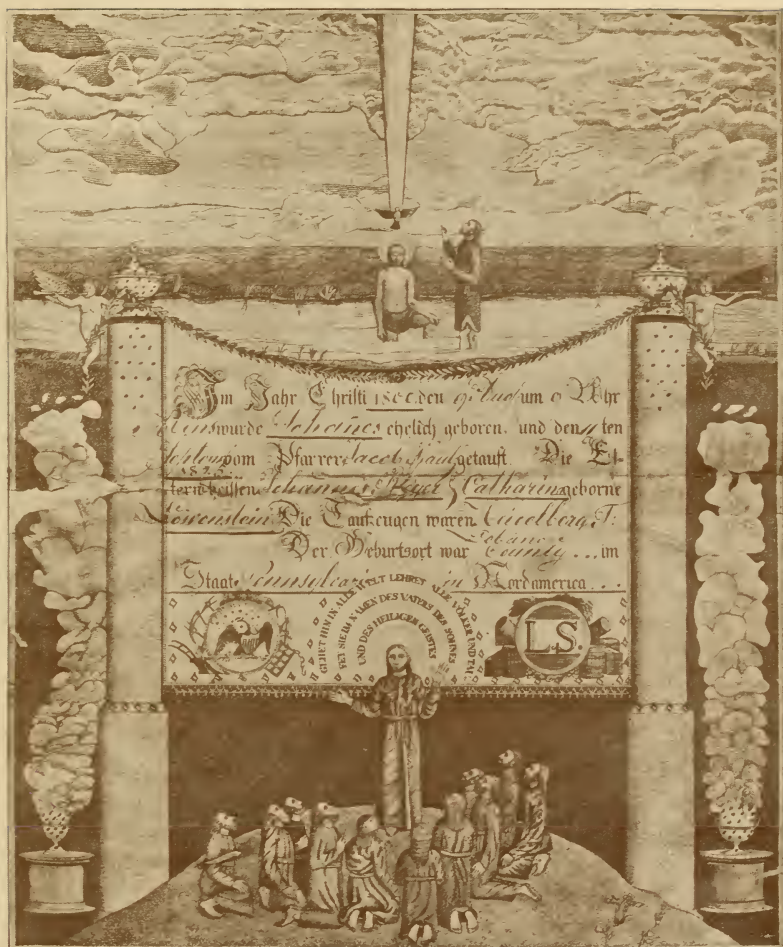 Im Jahr Christi den um Uhr
wurde Johañes ehelich geboren, und den 11 ten
vom Pfarrer Jacob getauft Die El-
18
tern heissen Johannes Meyer & Catharin geborne
Löwenstein Die Taufzeugen waren
Der Geburtsort war County ... im
Staat Pennsylvanien in Nordamerica ...
GEHET HIN IN ALLE WELT LEHRET ALLE VÖLKER UND TAU
FET SIE IM NAMEN DES VATERS DES SOHNES
UND DES HEILIGEN GEISTES
L.S.